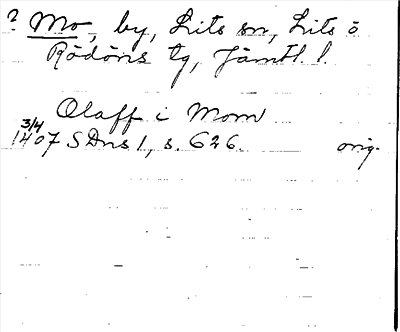 ? Mo, by, Lits sn, Lits o
Rödöns tg, Jämtl. l.
Olaff i Mom
3/4
1407 SDns 1, s. 626. orig.